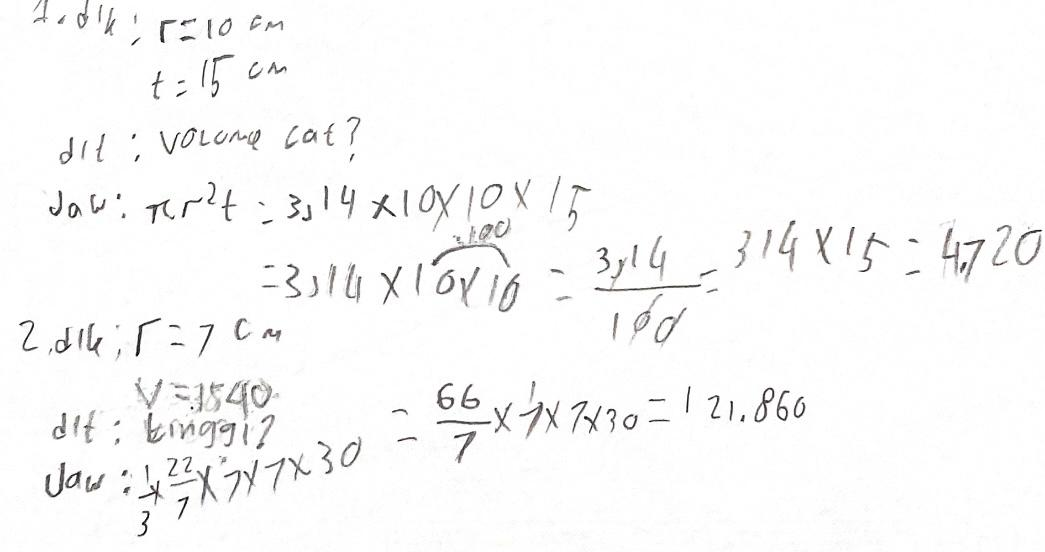 1. dik : r = 10 cm
t = 15 cm
dit : volume cat?
Jaw : πr²t = 3,14 × 10 × 10 × 15
= 3,14 × 10 × 10 = 3,14/100 = 314 × 15 = 4.720
:100
2. dik : r = 7 cm
V = 1540
dit : tinggi?
Jaw : 1/3 × 22/7 × 7 × 7 × 30 = 66/7 × 7 × 7 × 30 = 121.860